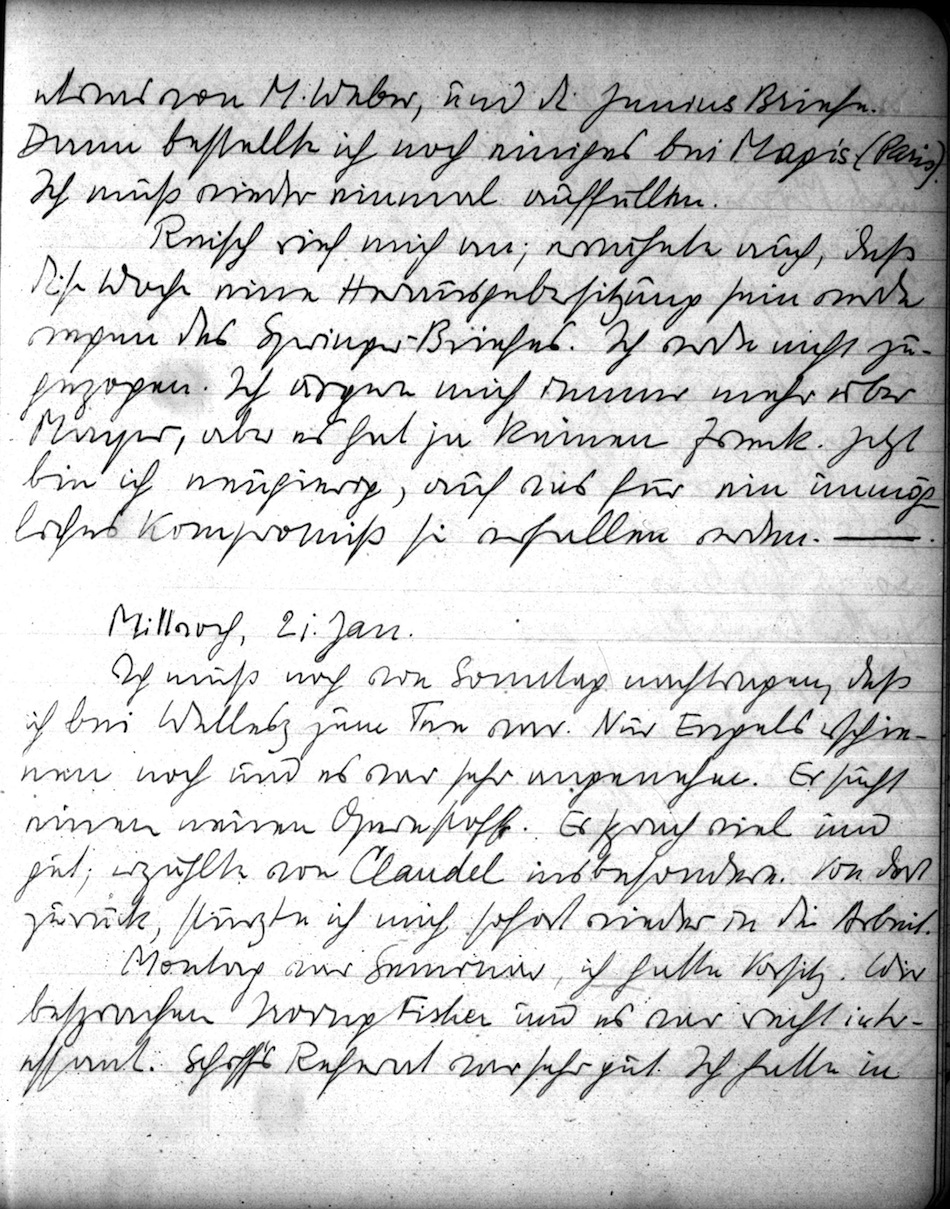 etwas von M. Weber, und die Junius Briefe.
Dann bestellte ich noch einiges bei Magis (Paris).
Ich muß wieder einmal auffüllen.
Reisch rief mich an; erwähnte auch, daß
diese Woche eine Herausgebersitzung sein werde
wegen des Springer-Briefes. Ich werde nicht zu-
gezogen. Ich ärgere mich immer mehr über
Mayer, aber es hat ja keinen Zweck. Jetzt
bin ich neugierig, auf was für ein unmög-
liches Kompromiß sie verfallen werden. —
Mittwoch, 21. Jan.
Ich muß noch von Sonntag nachtragen, daß
ich bei Wellesz zum Tee war. Nur Engels erschie-
nen noch und es war sehr angenehm. Er sucht
einen neuen Opernstoff. Er sprach viel und
gut; erzählte von Claudel insbesondere. Von dort
zurück, stürzte ich mich sofort wieder in die Arbeit.
Montag war Seminar, ich hatte Vorsitz. Wir
besprachen Irving Fisher und es war recht inter-
essant. Schiff's Referat war sehr gut. Ich hatte in